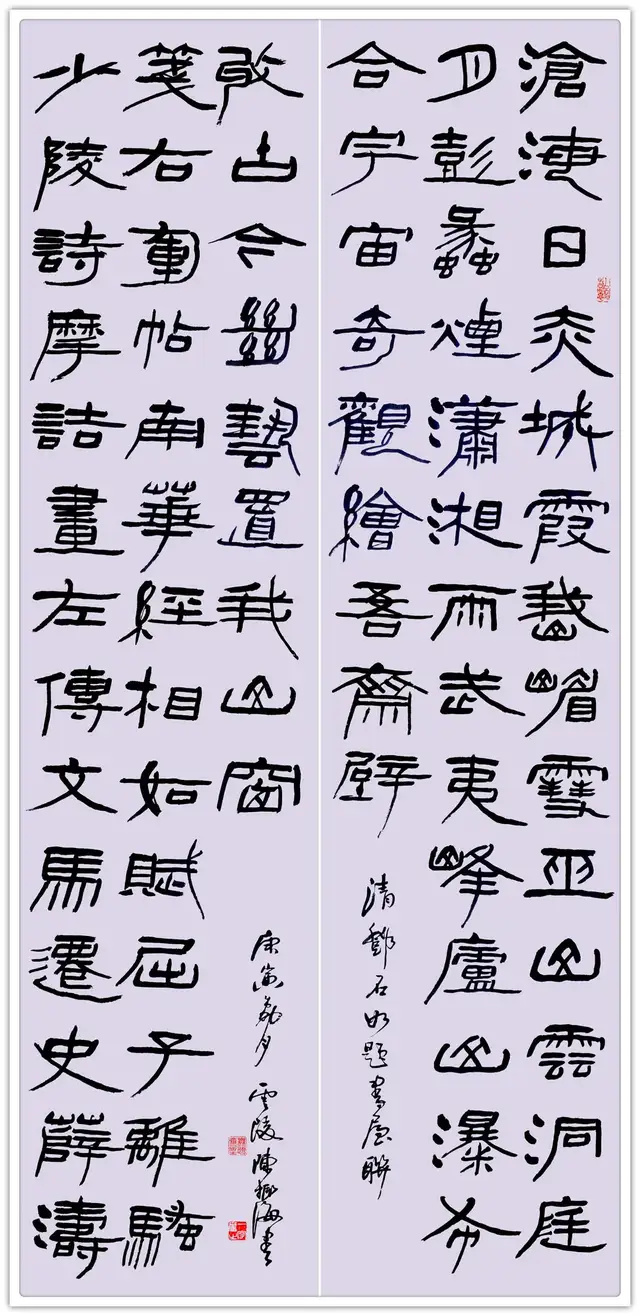 滄海日赤城霞峩嵋雪巫山雲洞庭
月彭蠡煙瀟湘雨武夷峰廬山瀑布
合宇宙奇觀繪吾齋壁
清鄧石如題書屋聯
少陵詩摩詰畫左傳文馬遷史薛濤
箋右軍帖南華經相如賦屈子離騷
收古今絕藝置我山窗
庚寅月雲陵陳海書